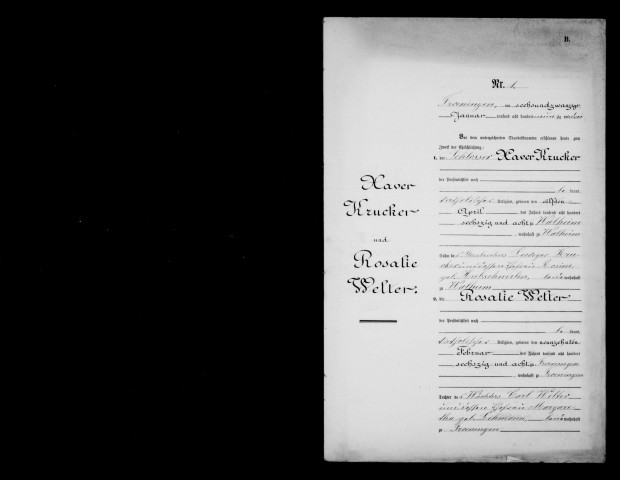 B.
Nr. 1.
Froeningen, am sechsundzwanzig
Januar tausend acht hundert neunzig
Vor dem unterzeichneten Standesbeamten erschienen heute zum
Zweck der Eheschließung:
1. der Schlosser Xaver Krucker
der Persönlichkeit nach
kannt,
katholischer Religion, geboren den elften
April des Jahres tausend acht hundert
sechszig und acht zu Walheim
, wohnhaft zu Walheim
Sohn des
geb. wohnhaft
zu Walheim
2. die Rosalie Welter
der Persönlichkeit nach
kannt,
katholischer Religion, geboren den neunzehnten
Februar des Jahres tausend acht hundert
sechszig und acht zu Froeningen
, wohnhaft zu Froeningen
Tochter des Carl Welter
und dessen Ehefrau Margare
tha geb. Lehmann, wohnhaft
zu Froeningen
Xaver
Krucker
und
Rosalie
Welter.